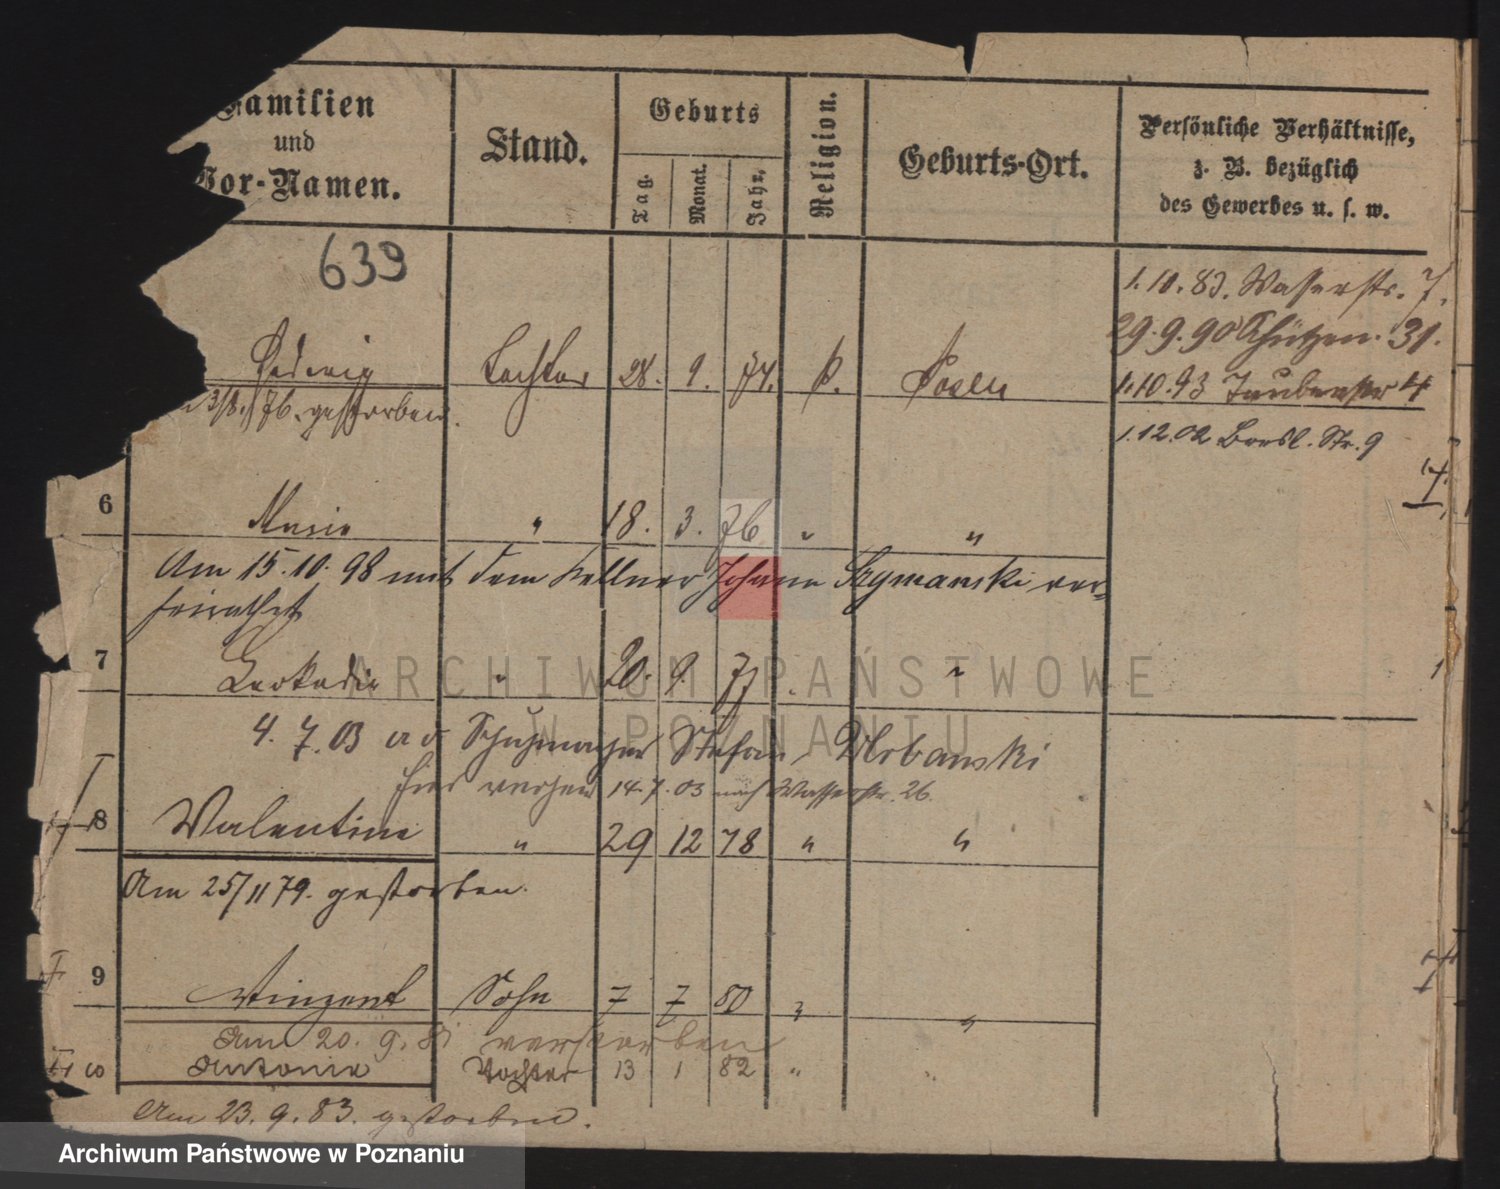 Familien
und
Vor-Namen.
Stand.
Geburts
Tag.
Monat.
Jahr.
Religion.
Geburts-Ort.
Persönliche Verhältnisse,
z. B. bezüglich
des Gewerbes u. s. w.
639
1.10.83. Wasserstr. 7.
29.9.90 Schützen. 31.
Hedwig Tochter 28. 9. 74. k. Posen
1.10.93 Taubenstr 4
3/8. 76. gestorben.
1.12.02 Bresl. Str. 9
6 Maria " 18. 3. 76 " "
Am 15.10.98 mit dem Kellner Johann Szymanski ver=
heirathet
7 Leokadia " 20. 9. 77 . "
4.7.03 a d Schuhmacher Stefan Urbanski
hier verzog 14.7.03 nach Wasserstr. 26.
8 Valentine " 29 12 78 " "
Am 25/11 79. gestorben.
9 Vinzent Sohn 7 7 80 " "
Am 20. 9. 81 verstorben
10 Antonie Tochter 13 1 82 " "
Am 23.9.83. gestorben.
ARCHIWUM PAŃSTWOWE
W POZNANIU
Archiwum Państwowe w Poznaniu